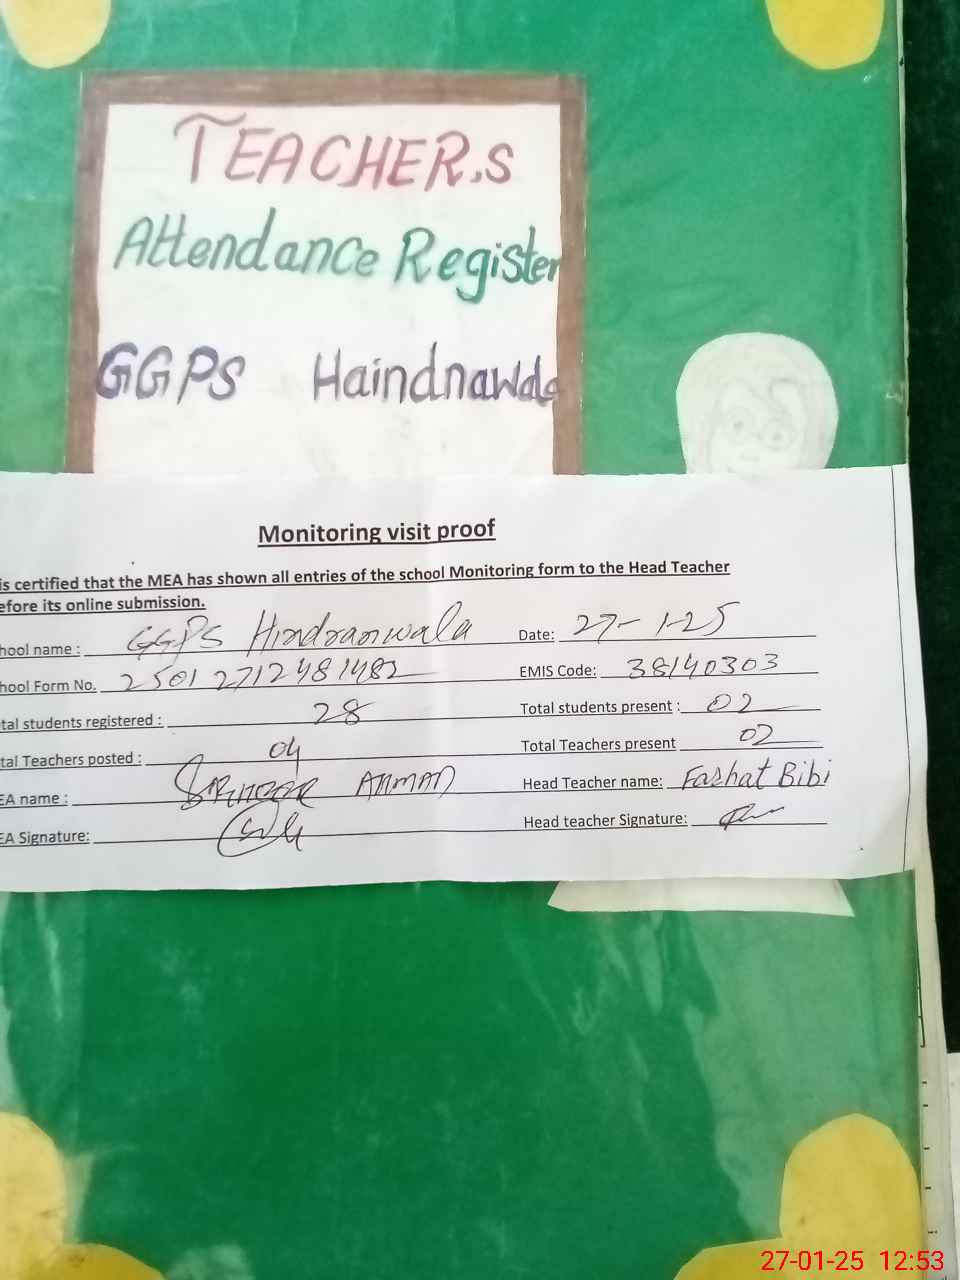 TEACHER,S
Attendance Register
GGPS Haindnawala
Monitoring visit proof
is certified that the MEA has shown all entries of the school Monitoring form to the Head Teacher
efore its online submission.
hool name : GGPS Hindranwala Date: 27-1-25
hool Form No. 2501 2712481482 EMIS Code: 38140303
tal students registered : 28 Total students present : 02
tal Teachers posted : 04 Total Teachers present 02
EA name : AHMAD Head Teacher name: Fashat Bibi
EA Signature: Head teacher Signature:
27-01-25 12:53